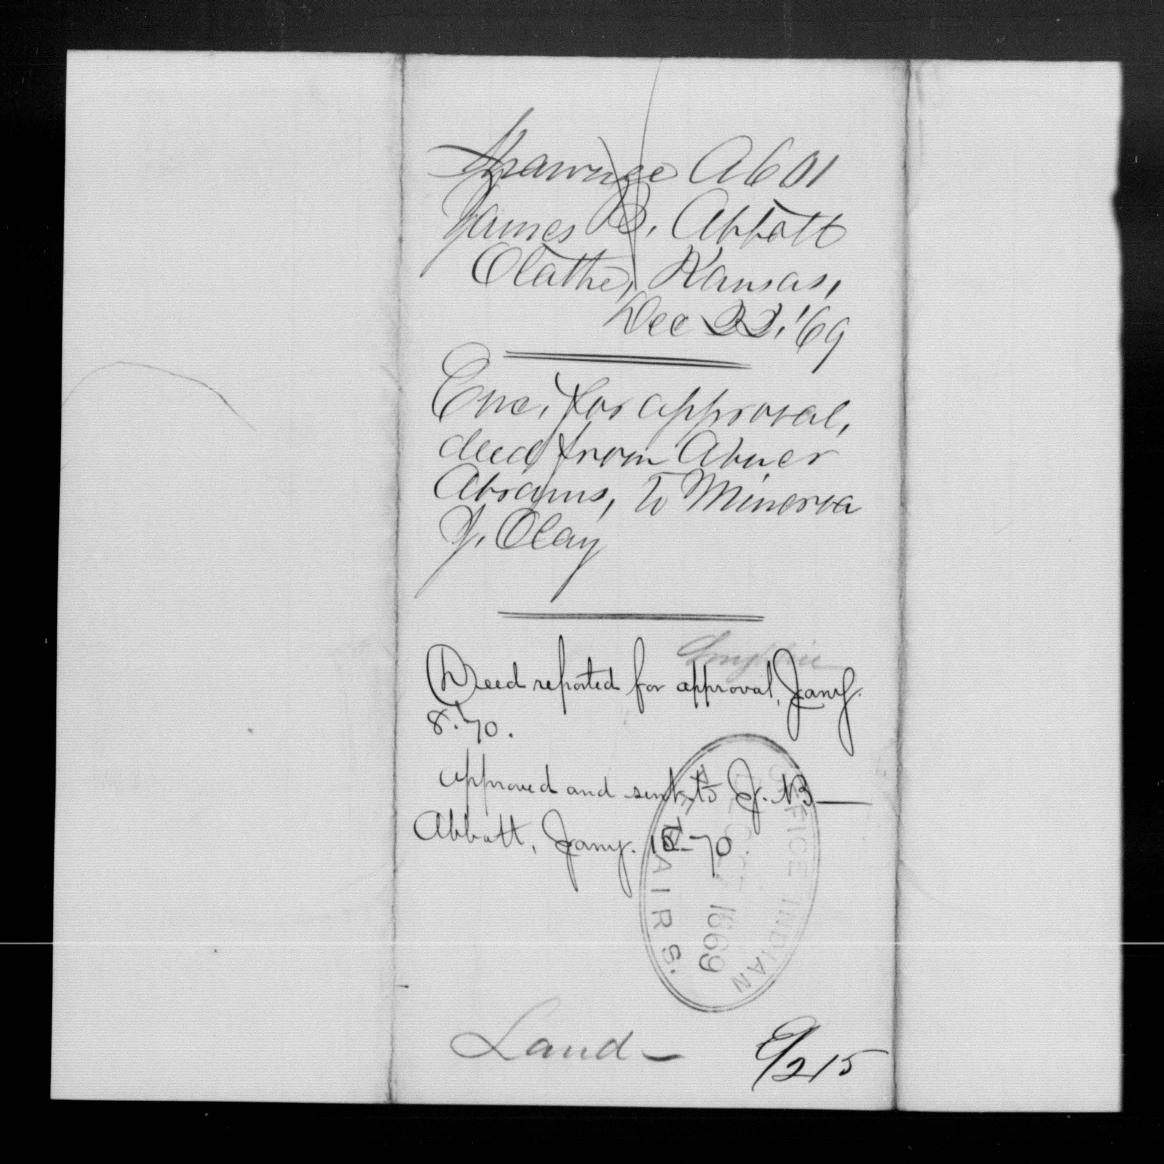 Shawnee A601
James B. Abbott
Olathe, Kansas,
Dec 22, '69
Enc. for approval,
deed from Abner
Abrams, to Minerva
J. Olay
Deed reported for approval, Jany.
8. 70.
approved and sent to J. B
Abbott, Jany. 70
OFFICE INDIAN AFFAIRS.
DEC 27 1869
Land